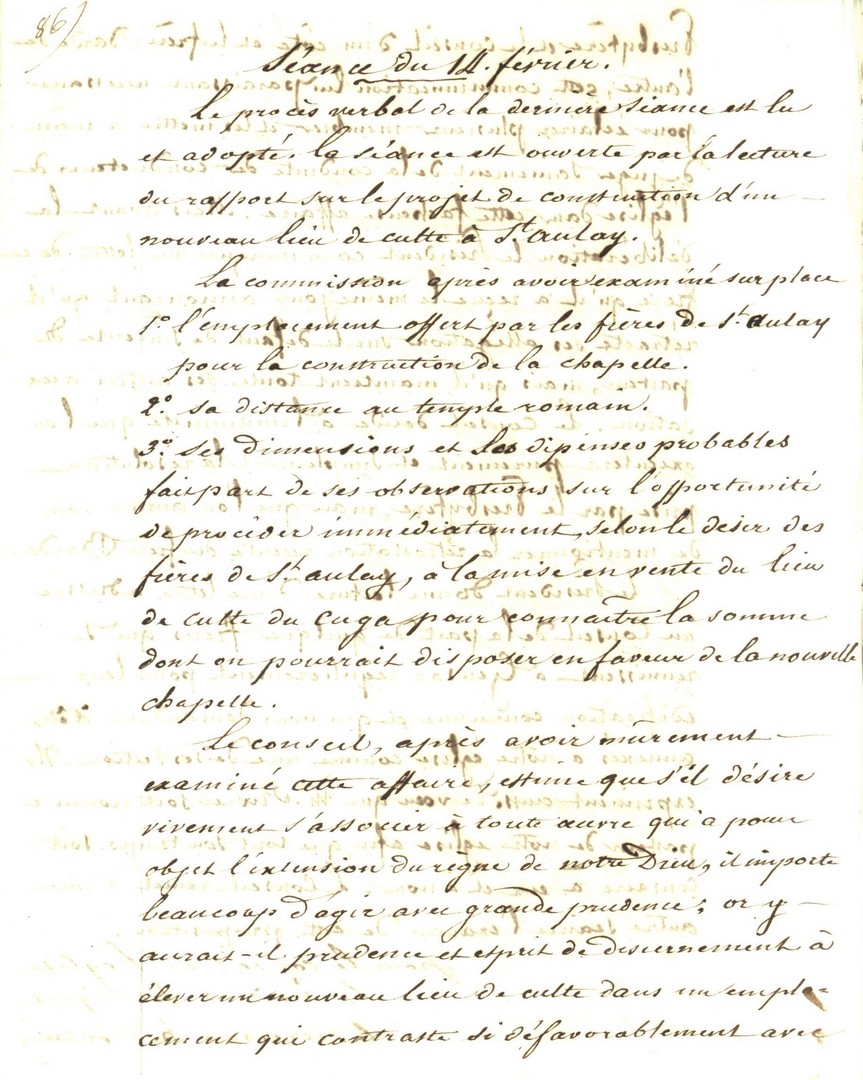 86)
Séance du 14. février.
Le procès verbal de la dernière séance est lu
et adopté. la séance est ouverte par la lecture
du rapport sur le projet de construction d'un —
nouveau lieu de culte à St. aulay.
La commission après avoir examiné sur place
1.° l'emplacement offert par les frères de St. aulay
pour la construction de la chapelle.
2.° sa distance au temple romain.
3.° ses dimensions et les dépenses probables
fait part de ses observations sur l'opportunité
de procéder immédiatement, selon le désir des
frères de St. aulay, à la mise en vente du lieu
de culte du Cuga pour connaître la somme
dont on pourrait disposer en faveur de la nouvelle
chapelle.
Le conseil, après avoir mûrement —
examiné cette affaire, estime que s'il désire
vivement s'associer à toute œuvre qui a pour
objet l'extension du règne de notre Dieu, il importe
beaucoup d'agir avec grande prudence; or y —
aurait-il prudence et esprit de discernement à
élever un nouveau lieu de culte dans un empla=
cement qui contraste si défavorablement avec